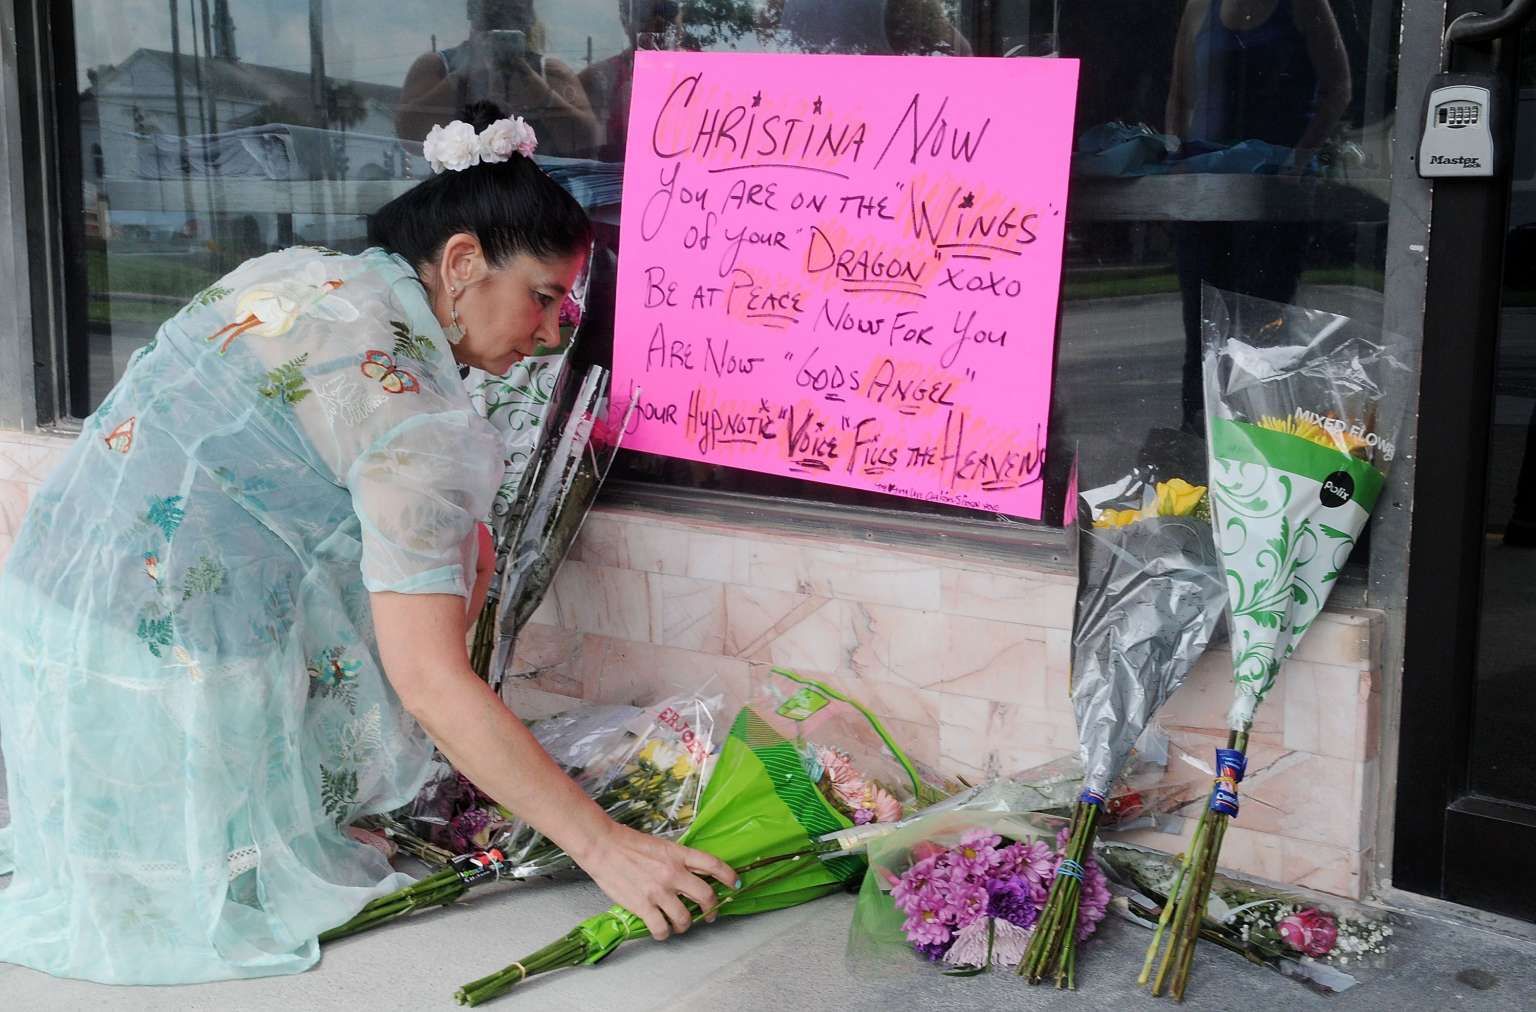 CHRISTINA NOW
YOU ARE ON THE "WINGS"
OF YOUR "DRAGON" XOXO
BE AT PEACE NOW FOR YOU
ARE NOW "GODS ANGEL"
YOUR HYPNOTIC "VOICE" FILLS THE HEAVENS
Master
Lock
MIXED FLOW
Publix